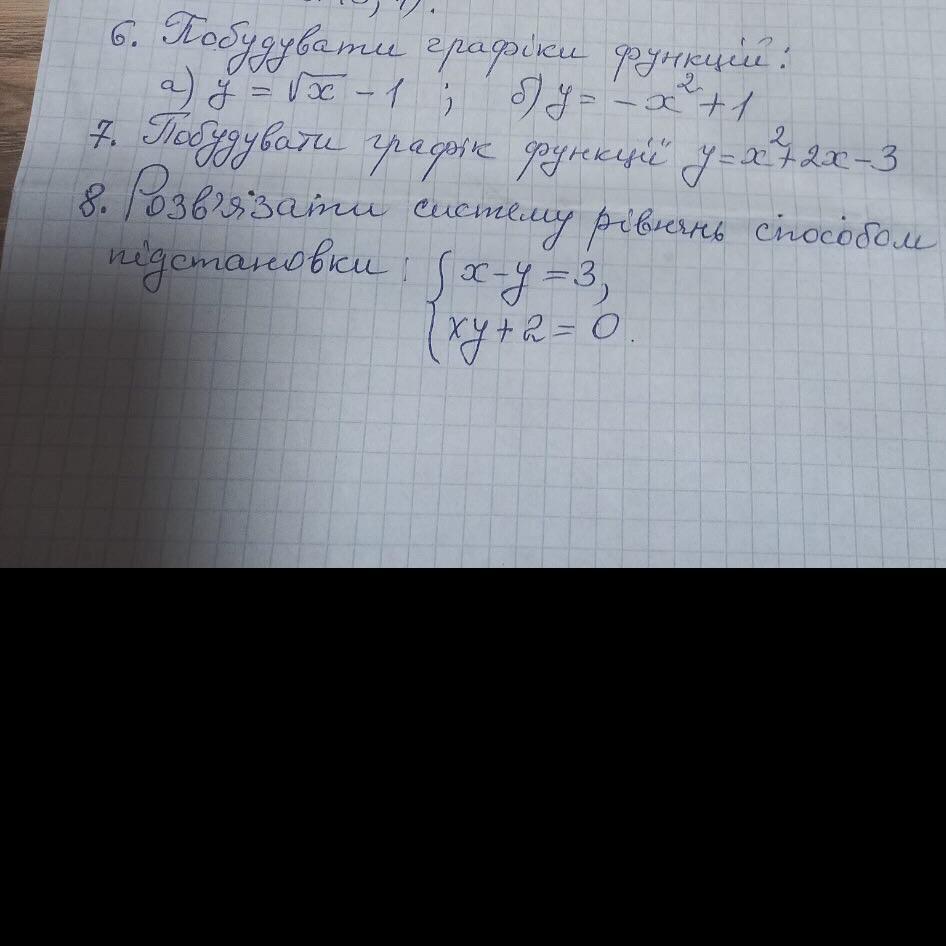 6. Побудувати графіки функцій:
а) y = √x - 1 ; б) y = - x² + 1
7. Побудувати графік функції y = x² + 2x - 3
8. Розв'язати систему рівнянь способом
підстановки: { x - y = 3,
xy + 2 = 0.